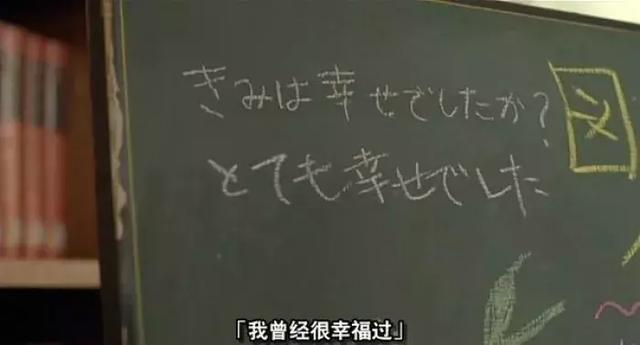 きみは幸せでしたか？
とても幸せでした
図
「我曾经很幸福过」